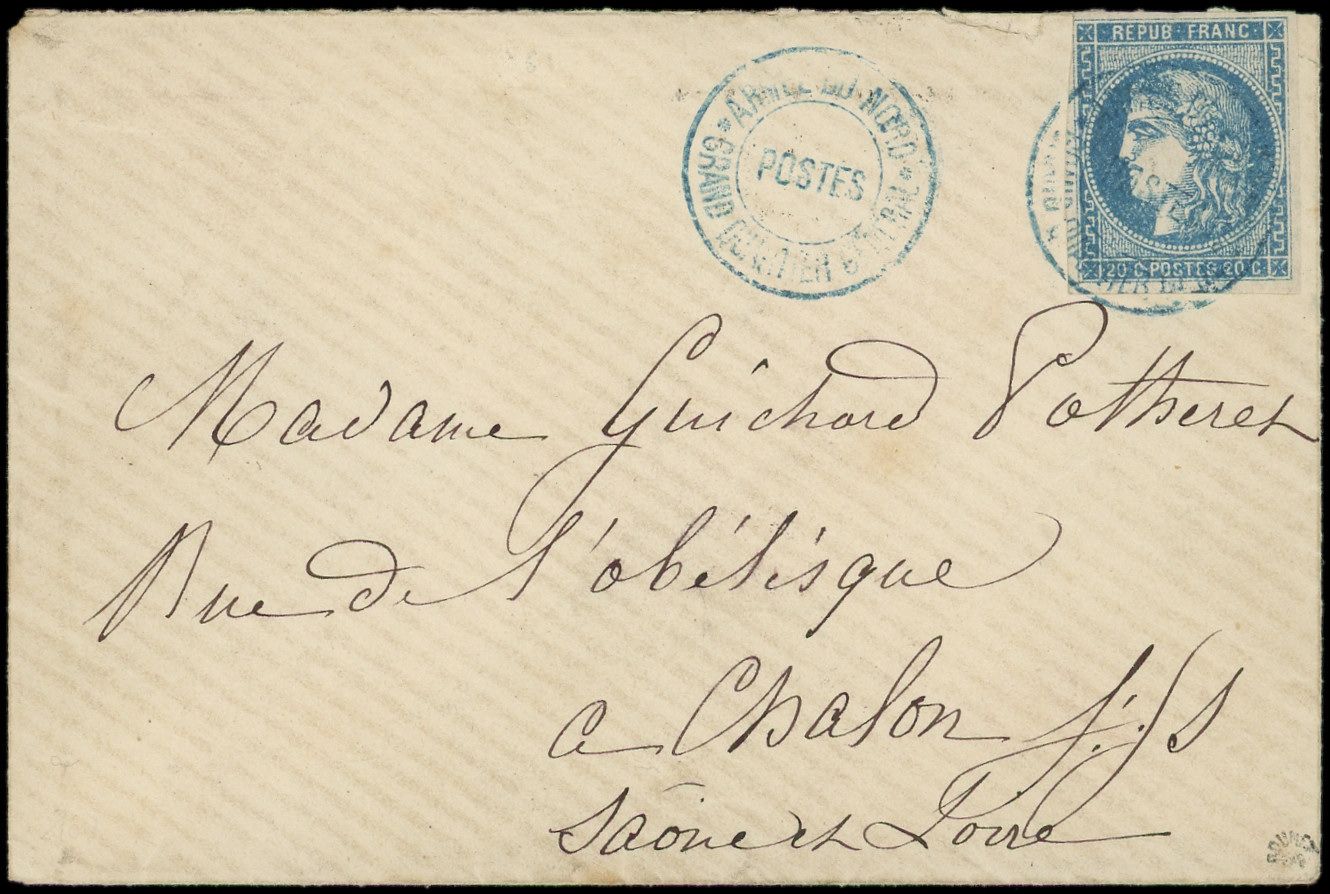 REPUB·FRANC·
20 C·POSTES·20 C
* ARMÉE DU NORD *
POSTES
GRAND QUARTIER GÉNÉRAL
Madame Guichard Potheret
Rue de l'obélisque
a Chalon s/S
Saône et Loire